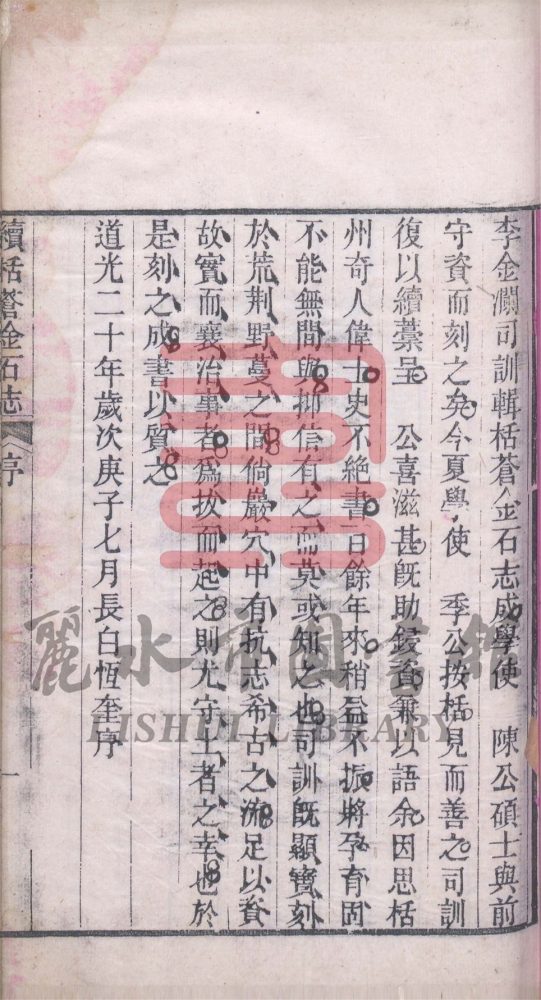 李金瀾司訓輯栝蒼金石志成學使 陳公碩士與前
守資而刻之矣今夏學使 季公按栝見而善之司訓
復以續藁呈 公喜滋甚旣助鋟資兼以語余因思栝
州奇人偉士史不絕書百餘年來稍益不振將孕育固
不能無間與抑信有之而莫或知之也司訓旣顯寶刻
於荒荆野蔓之間倘巖穴中有抗志希古之流足以資
故實而襄治事者爲拔而起之則尤守土者之幸也於
是刻之成書以質之
道光二十年歲次庚子七月長白恆奎序
續栝蒼金石志 序 一
麗水市圖書館
LISHUI LIBRARY